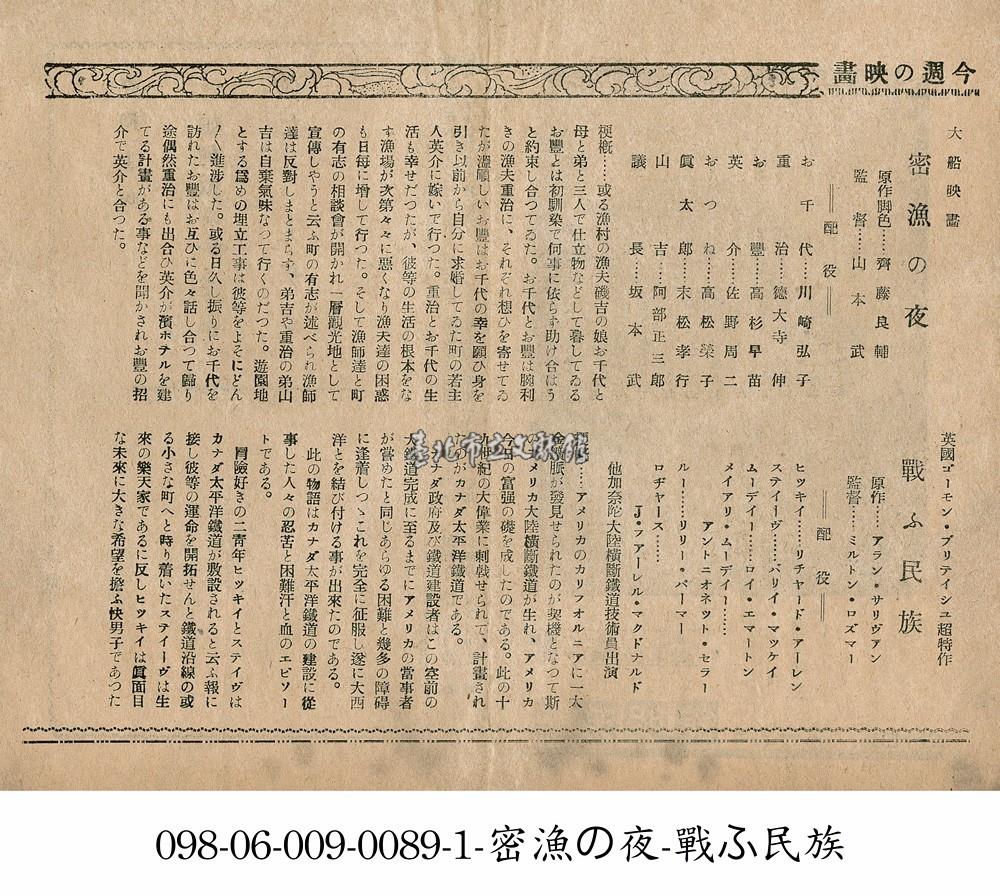 今週の映畫
大船映畫
密漁の夜
原作脚色……齊藤良輔
監督……山本武
配役
お千代……川崎弘子
重治……德大寺伸
お豐……高杉早苗
英介……佐野周二
おつね……高松榮子
眞太郎……末松孝行
山吉……阿部正三郎
議長……坂本武
梗槪……或る漁村の漁夫磯吉の娘お千代と
母と弟と三人で仕立物などして暮してゐる
お豐とは初馴染で何事に依らず助け合はう
と約束し合つてゐた。お千代とお豐は腕利
きの漁夫重治に、それぞれ想ひを寄せてゐ
たが滿願しいお豐はお千代の幸を願ひ身を
引き以前から自分に求婚してゐた町の若主
人英介に嫁いで行つた。重治とお千代の生
活も幸せだつたが、彼等の生活の根本をな
す漁場が次第々々に惡くなり漁夫達の困惑
も日每に增して行つた。そして漁師達と町
の有志の相談會が開かれ一層觀光地として
宣傳しやうと云ふ町の有志が述べられ漁師
達は反對しまとまらず、弟吉や重治の弟山
吉は自棄氣味なつて行くのだつた。遊園地
とする爲めの埋立工事は彼等をよそにどん
〳〵進涉した。或る日久し振りにお千代を
訪れたお豐はお互ひに色々話し合つて歸り
途偶然重治にも出合ひ英介が濱ホテルを建
てる計畫がある事などを聞かされお豐の招
介で英介と合つた。
英國ゴーモン・ブリテイシユ超特作
戰ふ民族
原作……アラン・サリヴアン
監督……ミルトン・ロズマー
配役
ヒツキイ……リチヤード・アーレン
ステイーヴ……バリイ・マツケイ
ムーデイー……ロイ・エマートン
メイアリ・ムーデイー……
アントニオネツト・セラー
ルー……リリー・パーマー
ロヂヤース……
J・フアーレル・マクドナルド
他加奈陀大陸橫斷鐵道技術員出演
……アメリカのカリフオルニアに一大
金鑛脈が發見せられたのが契機となつて斯
アメリカ大陸橫斷鐵道が生れ、アメリカ
今日の富强の礎を成したのである。此の十
九世紀の大偉業に刺戟せられて、計畫され
たのがカナダ太平洋鐵道である。
カナダ政府及び鐵道建設者はこの空前の
大鐵道完成に至るまでにアメリカの當事者
が嘗めたと同じあらゆる困難と幾多の障碍
に逢着しつゝこれを完全に征服し遂に大西
洋とを結び付ける事が出來たのである。
此の物語はカナダ太平洋鐵道の建設に從
事した人々の忍苦と困難汗と血のエピソー
トである。
冐險好きの二靑年ヒツキイとステイヴは
カナダ太平洋鐵道が敷設されると云ふ報に
接し彼等の運命を開拓せんと鐵道沿線の或
る小さな町へと時り着いたステイーヴは生
來の樂天家であるに反しヒツキイは眞面目
な未來に大きな希望を擔ふ快男子であつた
臺北市立文獻館
098-06-009-0089-1-密漁の夜-戰ふ民族